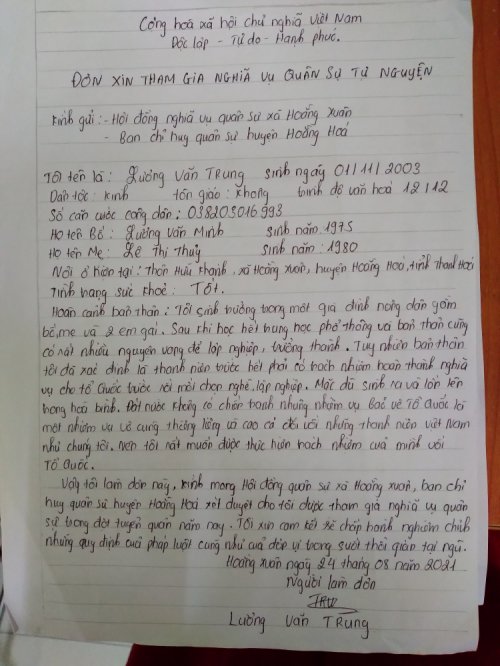 Cộng hoà xã hội chủ nghĩa Việt Nam
Độc lập - Tự do - Hạnh phúc.
ĐƠN XIN THAM GIA NGHĨA VỤ QUÂN SỰ TỰ NGUYỆN
Kính gửi: - Hội đồng nghĩa vụ quân sự xã Hoằng Xuân
- Ban chỉ huy quân sự huyện Hoằng Hoá
Tôi tên là: Lương Văn Trung sinh ngày 01/11/2003
Dân tộc: Kinh tôn giáo: Không trình độ văn hoá 12/12
Số căn cước công dân: 038203016993
Họ tên Bố: Lương Văn Minh sinh năm 1975
Họ tên Mẹ: Lê Thị Thuỷ sinh năm: 1980
Nơi ở hiện tại: Thôn Hữu Khánh, xã Hoằng Xuân, huyện Hoằng Hoá, tỉnh Thanh Hoá
Tình trạng sức khoẻ: Tốt.
Hoàn cảnh bản thân: Tôi sinh trưởng trong một gia đình nông dân gồm
bố, mẹ và 2 em gái. Sau khi học hết trung học phổ thông và bản thân cũng
có rất nhiều nguyện vọng để lập nghiệp, trưởng thành. Tuy nhiên bản thân
tôi đã xác định là thanh niên trước hết phải có trách nhiệm hoàn thành nghĩa
vụ cho tổ Quốc trước rồi mới chọn nghề, lập nghiệp. Mặc dù sinh ra và lớn lên
trong hoà bình. Đất nước không có chiến tranh nhưng nhiệm vụ bảo vệ Tổ Quốc là
một nhiệm vụ vô cùng thiêng liêng và cao cả đối với những thanh niên Việt Nam
như chúng tôi. Nên tôi rất muốn được thực hiện trách nhiệm của mình với
Tổ Quốc.
Vậy tôi làm đơn này, kính mong Hội đồng quân sự xã Hoằng Xuân, ban chỉ
huy quân sự huyện Hoằng Hoá xét duyệt cho tôi được tham gia nghĩa vụ quân
sự trong đợt tuyển quân năm nay. Tôi xin cam kết sẽ chấp hành nghiêm chỉnh
những quy định của pháp luật cũng như của đơn vị trong suốt thời gian tại ngũ.
Hoằng Xuân ngày 24 tháng 08 năm 2021
Người làm đơn
Lương Văn Trung